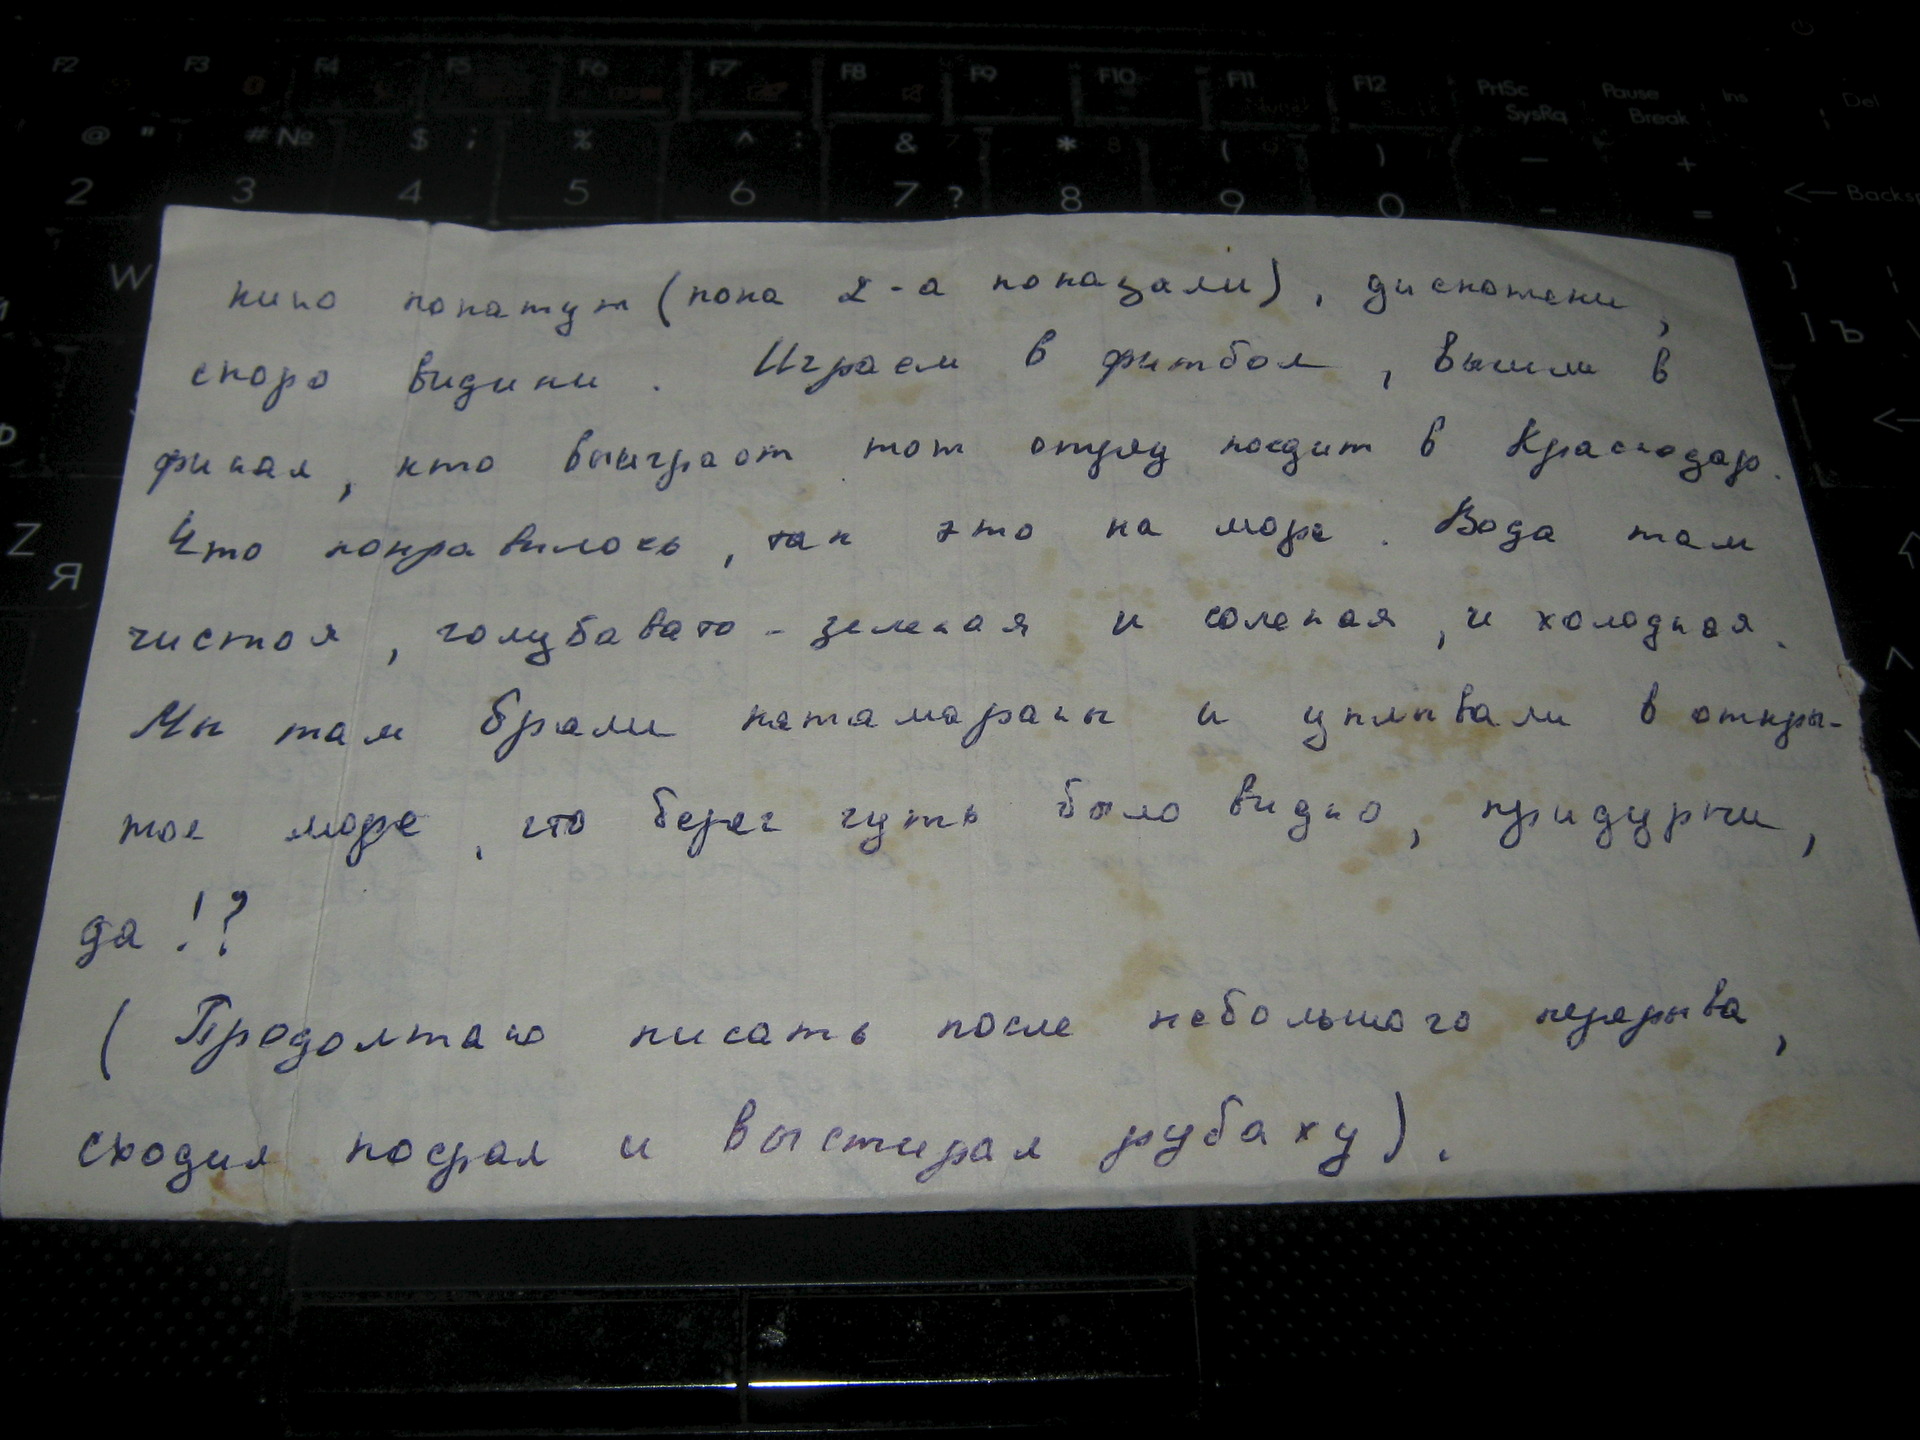 F2 F3 F4 F5 F6 F7 F8 F9 F10 F11 F12 PrtSc SysRq Pause Break Ins Del
@ " # № $ ; % ^ : & 7 * 8 ( 9 ) — +
2 3 4 5 6 7 ? 8 9 0 - = <— Backsp
W
Z
Я
Ъ
кино покатут (пока 2-а показали), дискотеки,
скоро видики. Играем в футбол, вышли в
финал, кто выиграет тот отряд поедит в Краснодар.
Что понравилось, так это на море. Вода там
чистая, голубавато-зеленая и соленая, и холодная.
Мы там брали катамараны и уплывали в откры-
тое море, что берег чуть было видно, придурки,
да!?
(Продолтаю писать после небольшого перерыва,
сходил посрал и выстирал рубаху).